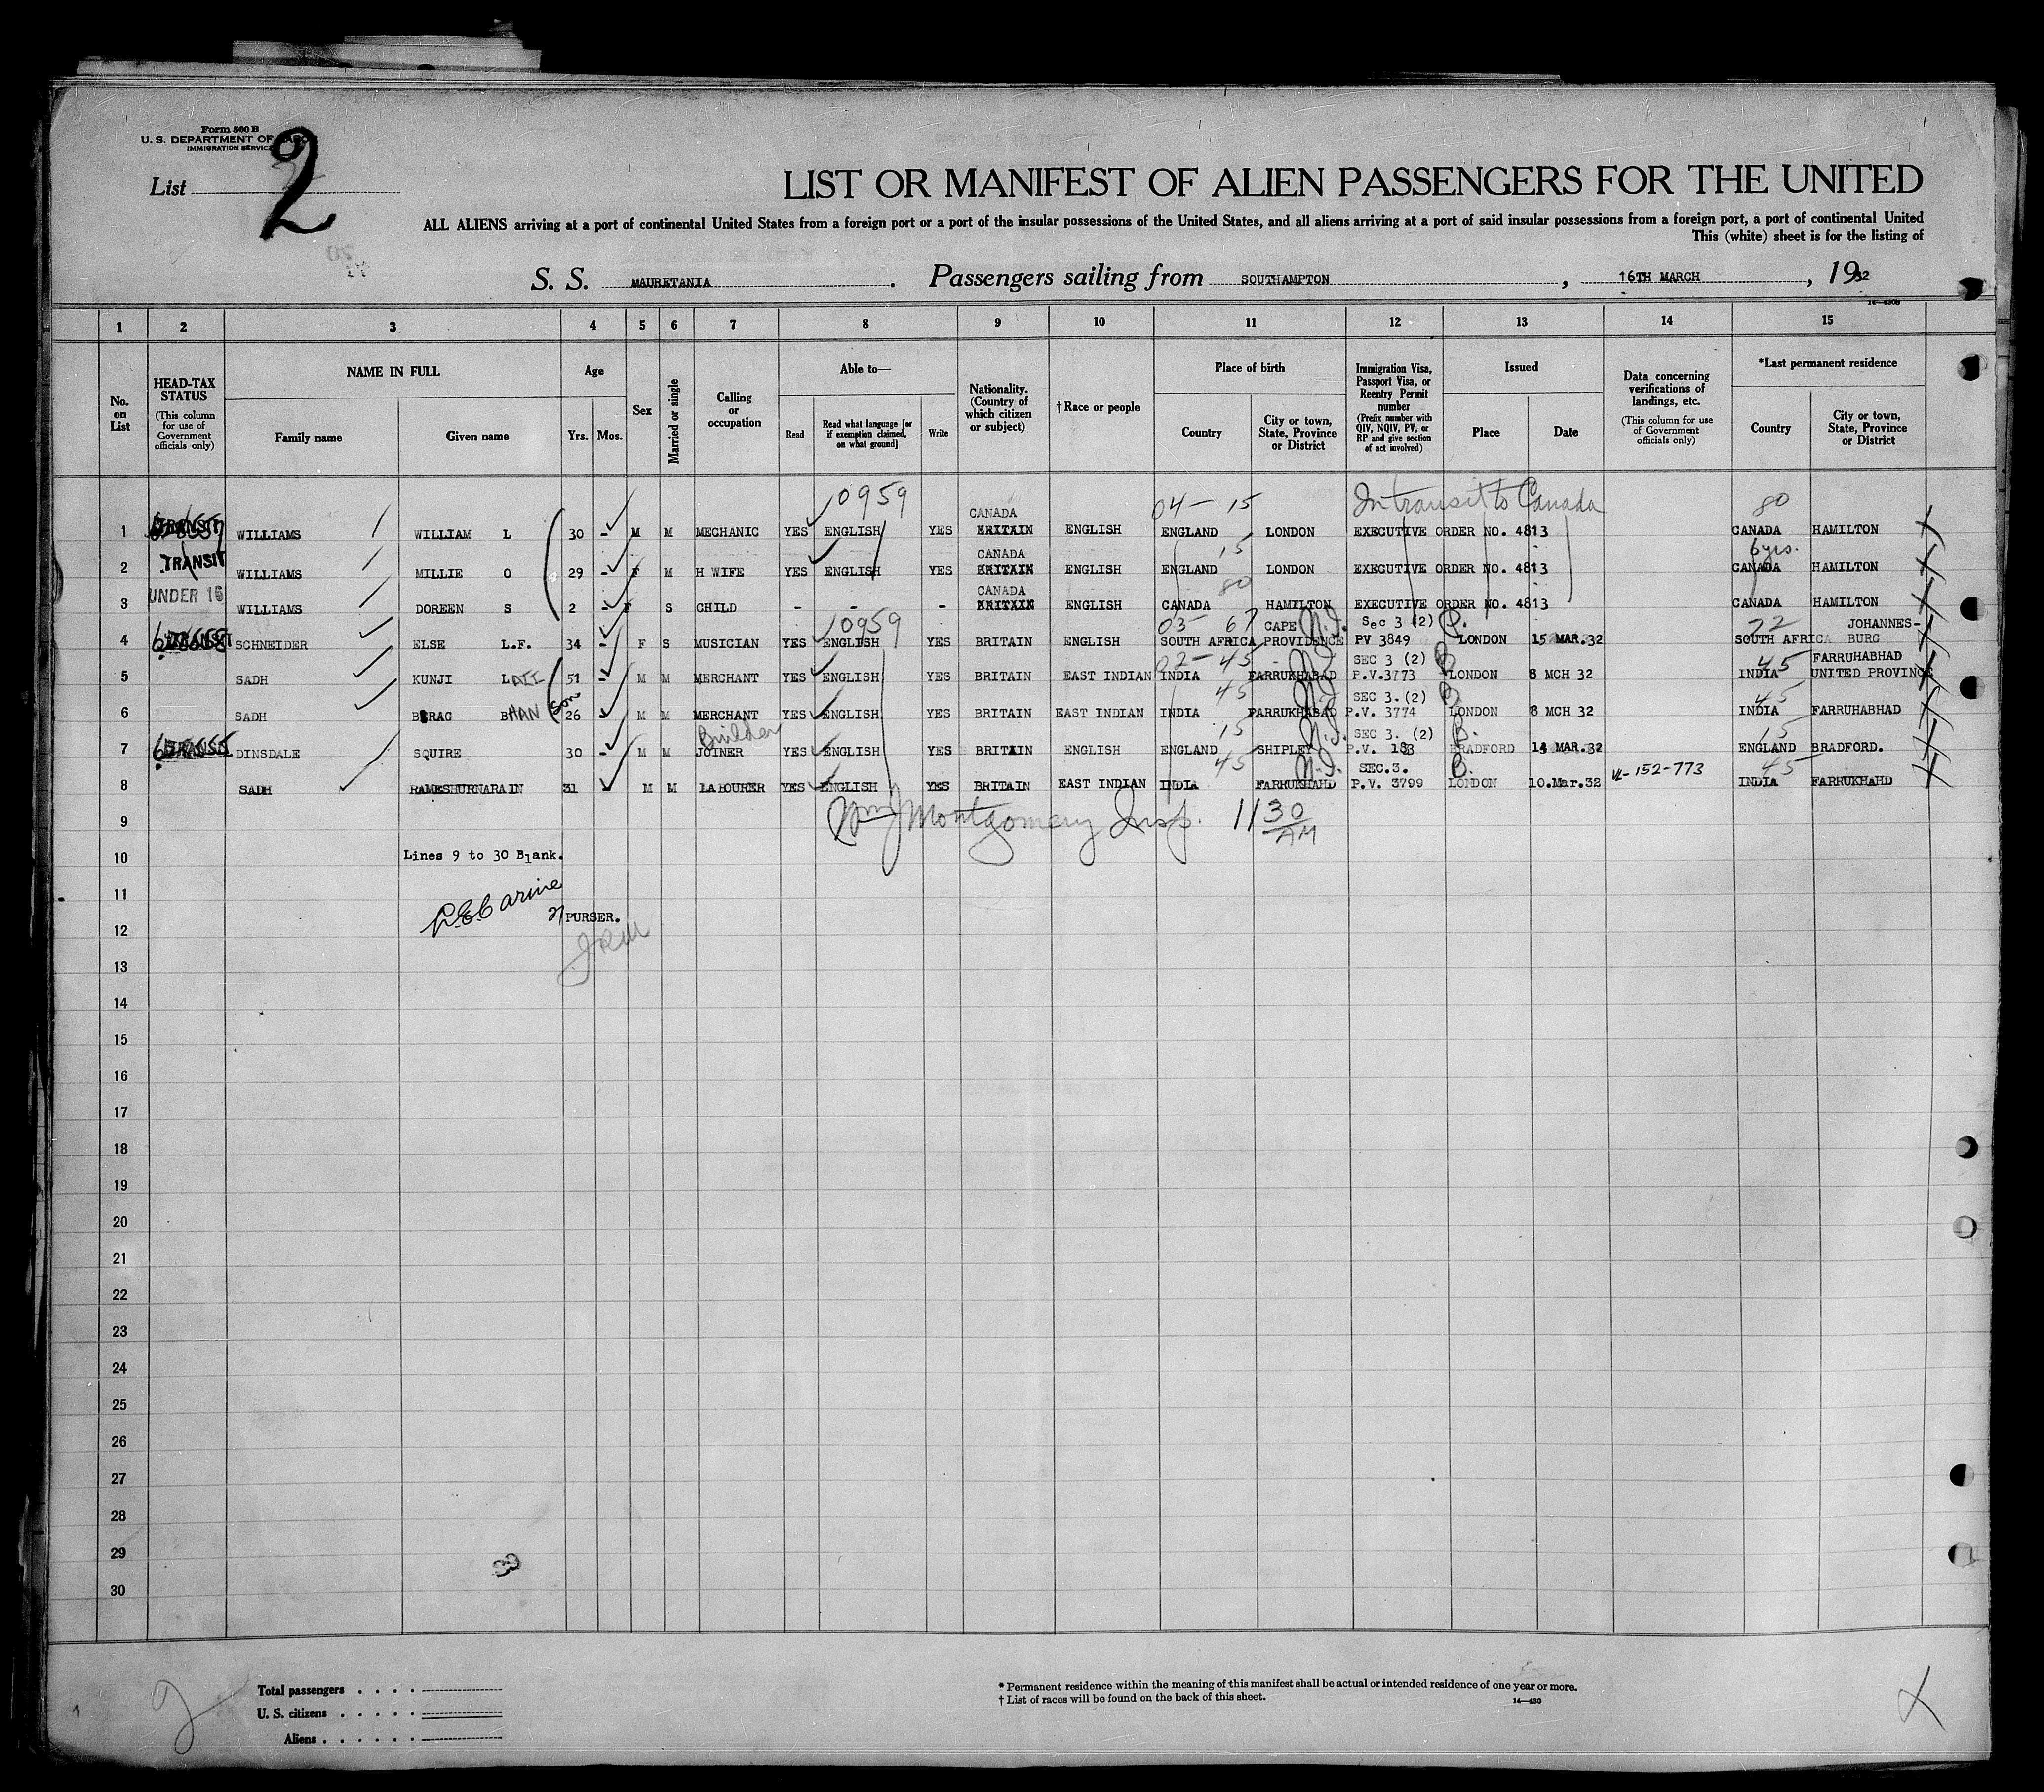 Form 500 B
U. S. DEPARTMENT OF LABOR
IMMIGRATION SERVICE
List 2
LIST OR MANIFEST OF ALIEN PASSENGERS FOR THE UNITED
ALL ALIENS arriving at a port of continental United States from a foreign port or a port of the insular possessions of the United States, and all aliens arriving at a port of said insular possessions from a foreign port, a port of continental United
This (white) sheet is for the listing of
S. S. MAURETANIA. Passengers sailing from SOUTHAMPTON, 16TH MARCH, 1932
1 2 3 4 5 6 7 8 9 10 11 12 13 14 15
No. on List
HEAD-TAX STATUS (This column for use of Government officials only)
NAME IN FULL
Family name Given name
Age
Yrs. Mos.
Sex
Married or single
Calling or occupation
Able to—
Read Read what language [or if exemption claimed, on what ground] Write
Nationality. (Country of which citizen or subject)
†Race or people
Place of birth
Country City or town, State, Province or District
Immigration Visa, Passport Visa, or Reentry Permit number (Prefix number with QIV, NQIV, PV, or RP and give section of act involved)
Issued
Place Date
Data concerning verifications of landings, etc. (This column for use of Government officials only)
*Last permanent residence
Country City or town, State, Province or District
0959 CANADA 04-15 In transit to Canada 80
1 TRANSIT WILLIAMS WILLIAM L 30 - M M MECHANIC YES ENGLISH YES BRITAIN ENGLISH ENGLAND LONDON EXECUTIVE ORDER NO. 4813 CANADA HAMILTON
CANADA 15 6yrs.
2 TRANSIT WILLIAMS MILLIE O 29 - F M H WIFE YES ENGLISH YES BRITAIN ENGLISH ENGLAND LONDON EXECUTIVE ORDER NO. 4813 CANADA HAMILTON
CANADA 80
3 UNDER 16 WILLIAMS DOREEN S 2 - F S CHILD - - - BRITAIN ENGLISH CANADA HAMILTON EXECUTIVE ORDER NO. 4813 CANADA HAMILTON
0959 03-67 CAPE N.I. Sec 3 (2) 72 JOHANNES-
4 TRANSIT SCHNEIDER ELSE L.F. 34 - F S MUSICIAN YES ENGLISH YES BRITAIN ENGLISH SOUTH AFRICA PROVIDENCE PV 3849 LONDON 15 MAR.32 SOUTH AFRICA BURG
02-45 SEC 3 (2) 45 FARRUHABHAD
5 SADH KUNJI 51 - M M MERCHANT YES ENGLISH YES BRITAIN EAST INDIAN INDIA FARRUKHABAD P.V.3773 LONDON 8 MCH 32 INDIA UNITED PROVINCE
45 SEC 3.(2) 45
6 SADH BHAN Son 26 M M MERCHANT YES ENGLISH YES BRITAIN EAST INDIAN INDIA FARRUKHABAD P.V. 3774 LONDON 8 MCH 32 INDIA FARRUHABHAD
Builder 15 N.I. SEC 3. (2) B. 15
7 TRANSIT DINSDALE SQUIRE 30 - M M JOINER YES ENGLISH YES BRITAIN ENGLISH ENGLAND SHIPLEY P.V. BRADFORD 14 MAR.32 ENGLAND BRADFORD.
45 N.I. SEC.3. B. 45
8 SADH RAMESHURNARAIN 31 M M LABOURER YES ENGLISH YES BRITAIN EAST INDIAN INDIA FARRUKHAHD P.V. 3799 LONDON 10.Mar.32 VL-152-773 INDIA FARRUKHAHD
9 Wm J Montgomery Insp. 11 30 AM
10 Lines 9 to 30 Blank.
11
PURSER.
12
13
14
15
16
17
18
19
20
21
22
23
24
25
26
27
28
29
30
Total passengers
U. S. citizens
Aliens
* Permanent residence within the meaning of this manifest shall be actual or intended residence of one year or more.
† List of races will be found on the back of this sheet.
14—430